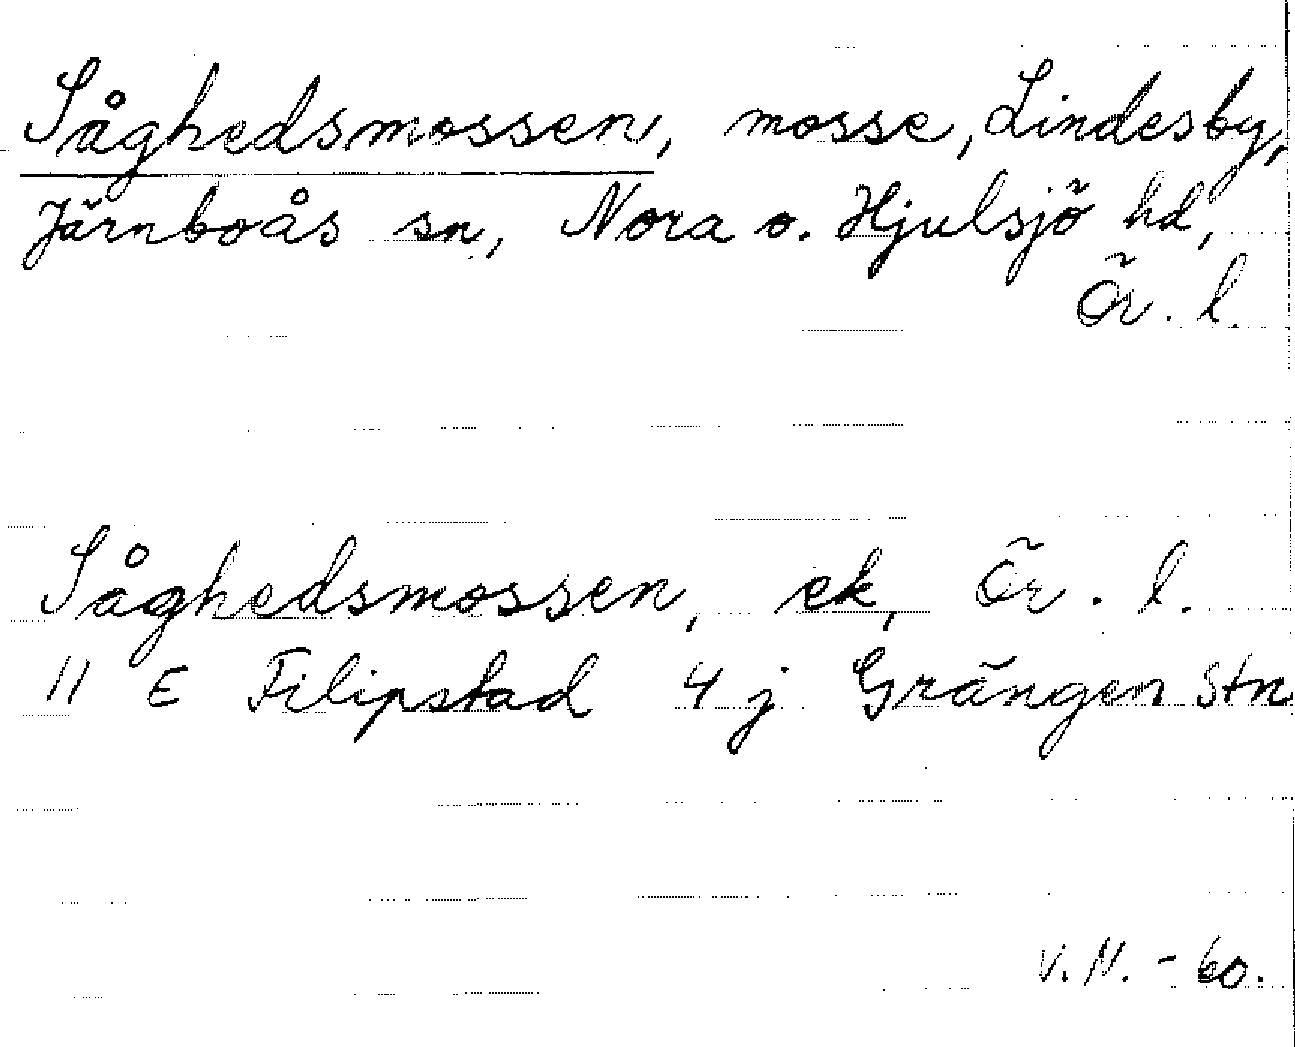 Såghedsmossen, mosse, Lindesby,
Järnboås sn, Nora o. Hjulsjö hd,
Ör. l.
Såghedsmossen, ek, Ör. l.
11 E Filipstad 4 j Grängen Stn
V. N. - 60.